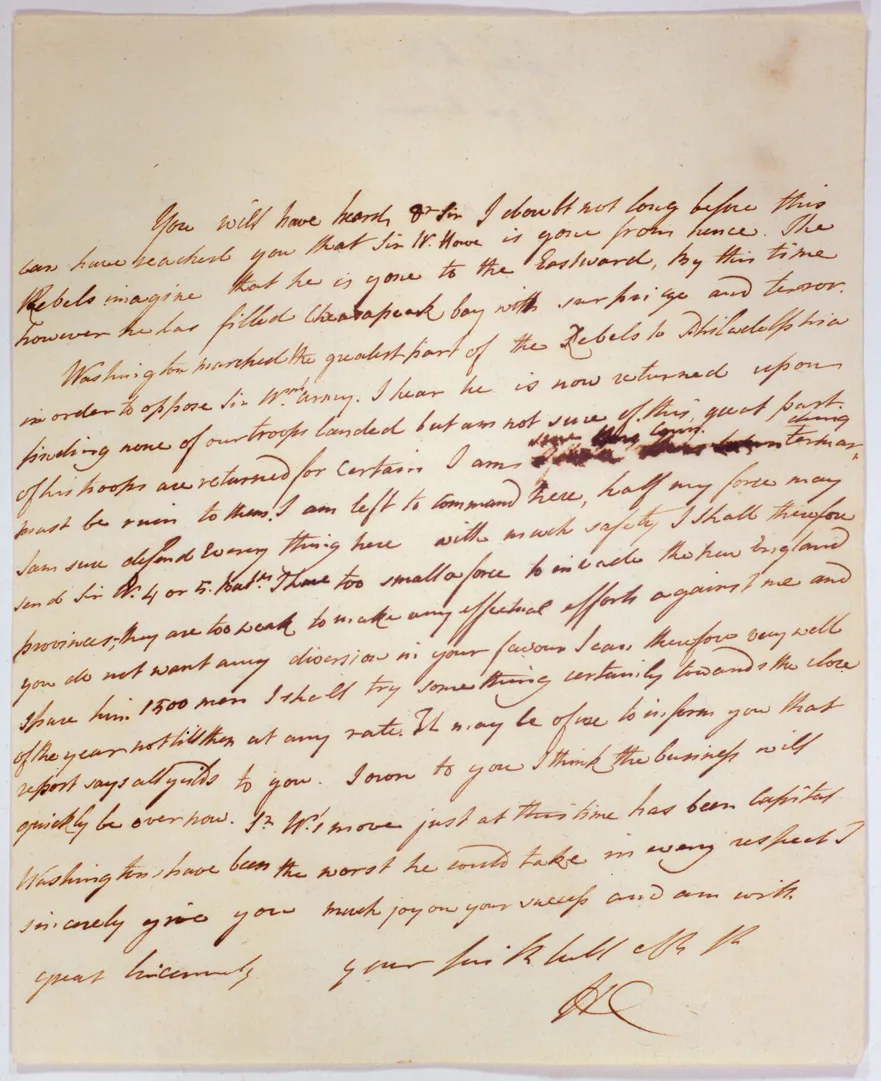 You will have heard, Dr Sir I doubt not long before this
can have reached you that Sir W. Howe is gone from hence. The
Rebels imagine that he is gone to the Eastward, By this time
however he has filled Chesapeak bay with surprize and terror.
Washington marched the greatest part of the Rebels to Philadelphia
in order to oppose Sir Wm's army. I hear he is now returned upon
finding none of our troops landed but am not sure of this, great part
of his troops are returned for certain I am sure this counter marching
must be ruin to them. I am left to command here, half my force may
I am sure defend every thing here with much safety I shall therefore
send Sir W. 4 or 5 Batns I have too small a force to invade the New England
provinces, they are too weak to make any effectual efforts against me and
you do not want any diversion in your favour I can therefore very well
spare him 1500 men I shall try some thing certainly towards the close
of the year not till then at any rate. It may be of use to inform you that
report says all yeilds to you. I own to you I think the business will
quickly be over now. Sr W's move just at this time has been Capital
Washingtons have been the worst he could take in every respect I
sincerely give you much joy on your success and am with
great Sincerity your
HC